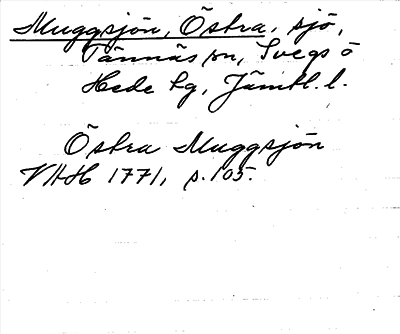 Muggsjön, Östra, sjö,
Tännäs sn, Svegs o
Hede tg, Jämtl. l.
Östra Muggsjön
VHH 1771, p. 105.